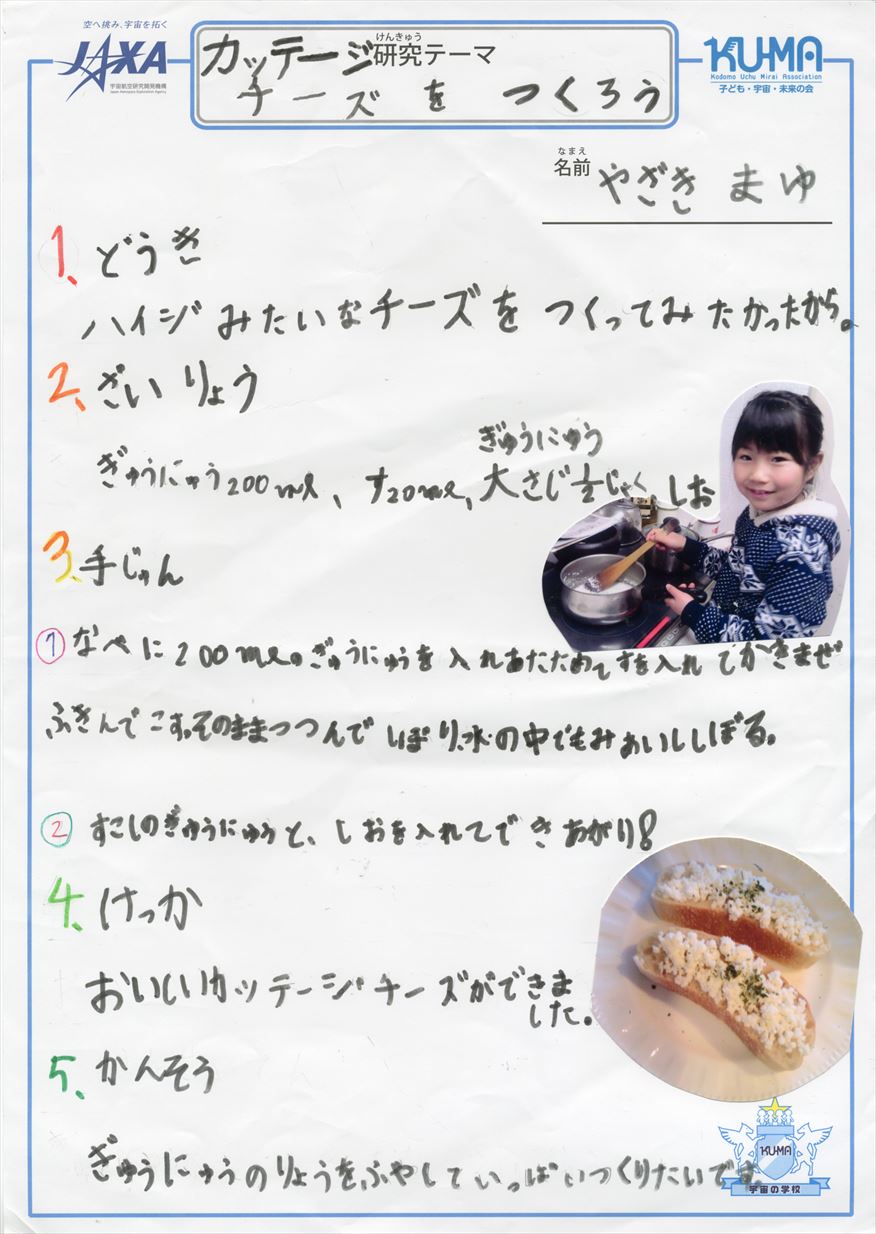 空へ挑み、宇宙を拓く
JAXA
宇宙航空研究開発機構
Japan Aerospace Exploration Agency
けんきゅう
研究テーマ
カッテージ
チーズを つくろう
KU-MA
Kodomo Uchu Mirai Association
子ども・宇宙・未来の会
なまえ
名前 やざき まゆ
1、どうき
ハイジみたいなチーズを つくってみたかったから。
2、ざいりょう
ぎゅうにゅう
ぎゅうにゅう200ml、す20ml、大さじ1/2じゃく、しお
3、手じゅん
① なべに200ml。ぎゅうにゅうを入れあたためてすを入れてかきまぜ
ふきんでこす。そのままつつんでしぼり、水の中でもみおいししぼる。
② すこしのぎゅうにゅうと、しおを入れてできあがり!
4、けっか
おいしいカッテージチーズができま
した。
5、かんそう
ぎゅうにゅうのりょうをふやしていっぱいつくりたいです。
KU-MA
宇宙の学校